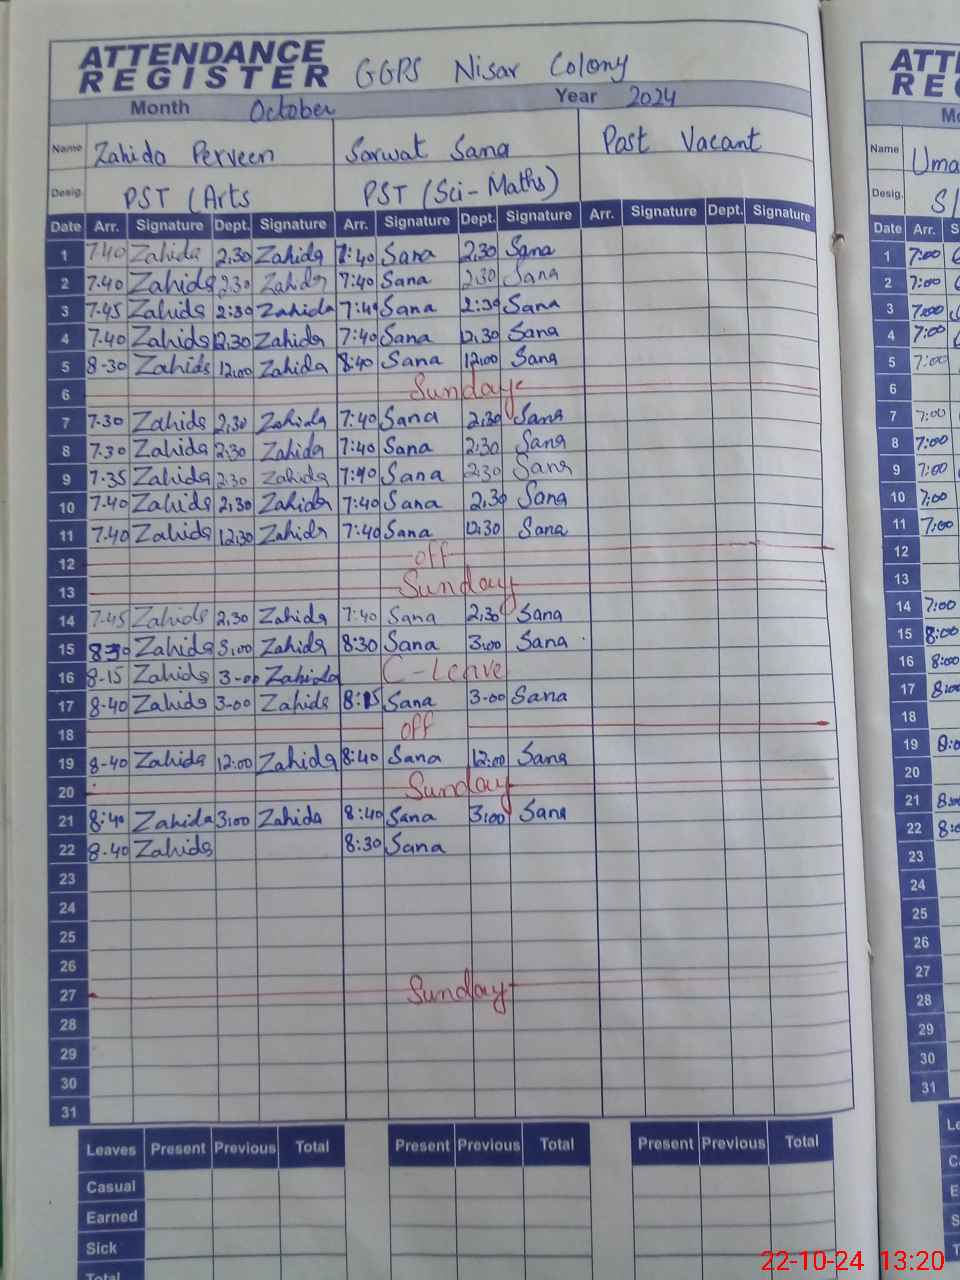 ATTENDANCE
REGISTER GGPS Nisar Colony
Month October Year 2024
Name Zahida Perveen Sarwat Sana Post Vacant
Desig. PST (Arts PST (Sci-Maths)
Date Arr. Signature Dept. Signature Arr. Signature Dept. Signature Arr. Signature Dept. Signature
1 7.40 Zahida 2.30 Zahida 7:40 Sana 2.30 Sana
2 7.40 Zahida 2.30 Zahida 7:40 Sana 2.30 Sana
3 7.45 Zahida 2:30 Zahida 7:4 Sana 2:30 Sana
4 7.40 Zahida 12.30 Zahida 7:40 Sana 12.30 Sana
5 8-30 Zahida 12.00 Zahida 8:40 Sana 12:00 Sana
6 Sunday
7 7.30 Zahida 2.30 Zahida 7:40 Sana 2.30 Sana
8 7.30 Zahida 2.30 Zahida 7:40 Sana 2.30 Sana
9 7.35 Zahida 2.30 Zahida 7:40 Sana 2.30 Sana
10 7.40 Zahida 2.30 Zahida 7:40 Sana 2.30 Sana
11 7.40 Zahida 12.30 Zahida 7:40 Sana 12.30 Sana
12 off
13 Sunday
14 7.45 Zahida 2.30 Zahida 7:40 Sana 2.30 Sana
15 8-30 Zahida 3.00 Zahida 8:30 Sana 3.00 Sana
16 8-15 Zahida 3-00 Zahida C-Leave
17 8-40 Zahida 3-00 Zahida 8:15 Sana 3-00 Sana
18 off
19 8-40 Zahida 12:00 Zahida 8:40 Sana 12:00 Sana
20 Sunday
21 8:40 Zahida 3.00 Zahida 8:40 Sana 3.00 Sana
22 8-40 Zahida 8:30 Sana
23
24
25
26
27 Sunday
28
29
30
31
Leaves Present Previous Total Present Previous Total Present Previous Total
Casual
Earned
Sick
Total
ATTE
RE
Name Uma
Desig. S/
Date Arr. S
1 7:00
2 7:00
3 7:00
4 7:00
5 7:00
6
7 7:00
8 7:00
9 7:00
10 7:00
11 7:00
12
13
14 7:00
15 8:00
16 8:00
17 8:00
18
19 8:0
20
21 8:0
22 8:0
23
24
25
26
27
28
29
30
31
22-10-24 13:20